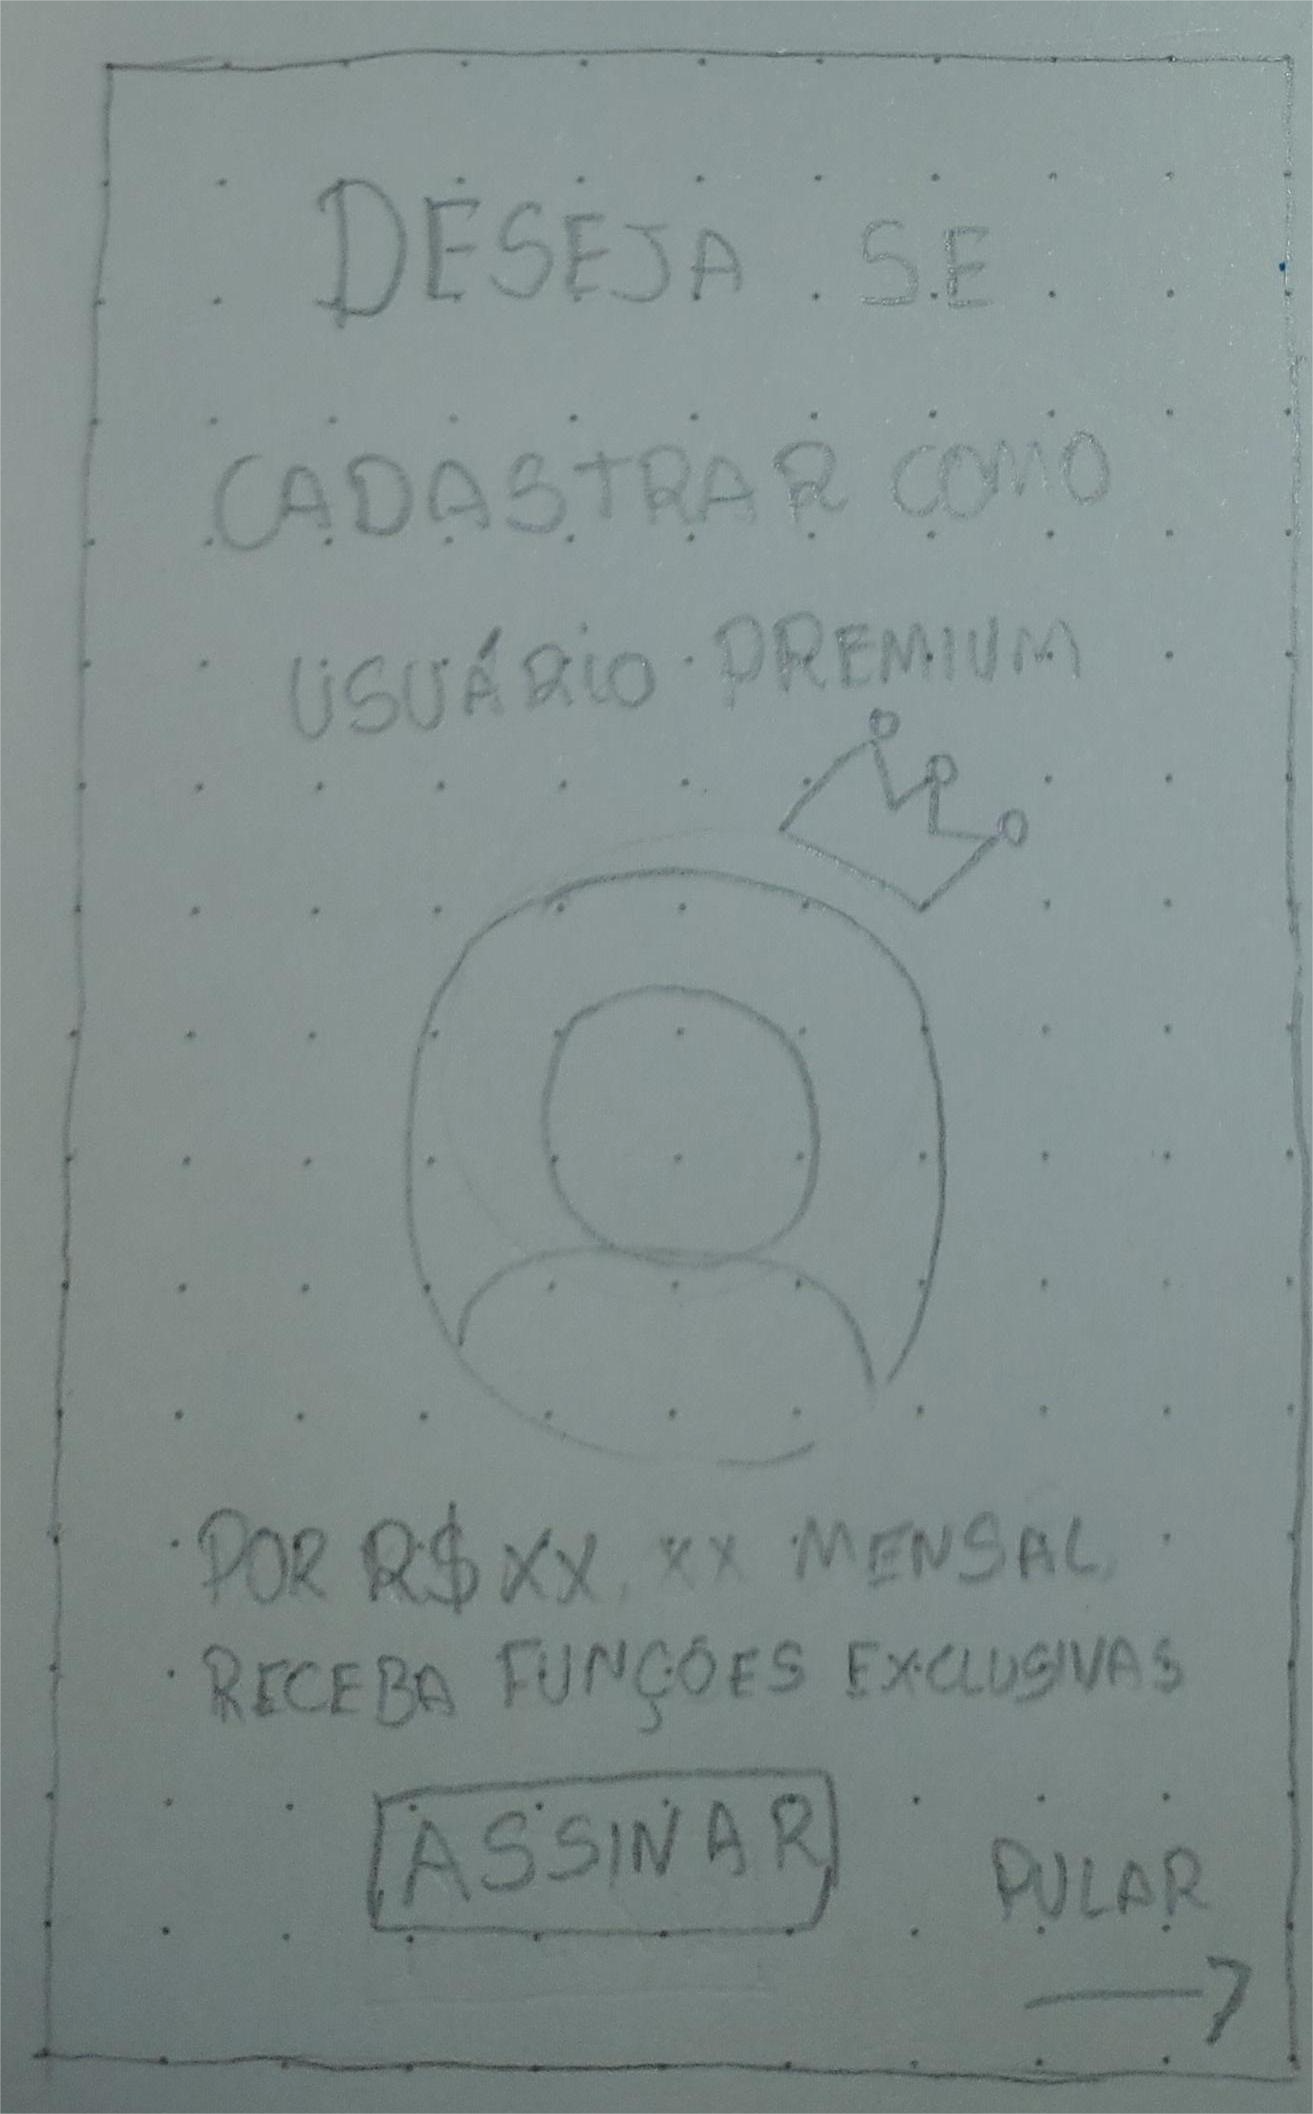 DESEJA SE
CADASTRAR COMO
USUÁRIO PREMIUM
POR R$ XX, XX MENSAL,
RECEBA FUNÇÕES EXCLUSIVAS
ASSINAR
PULAR